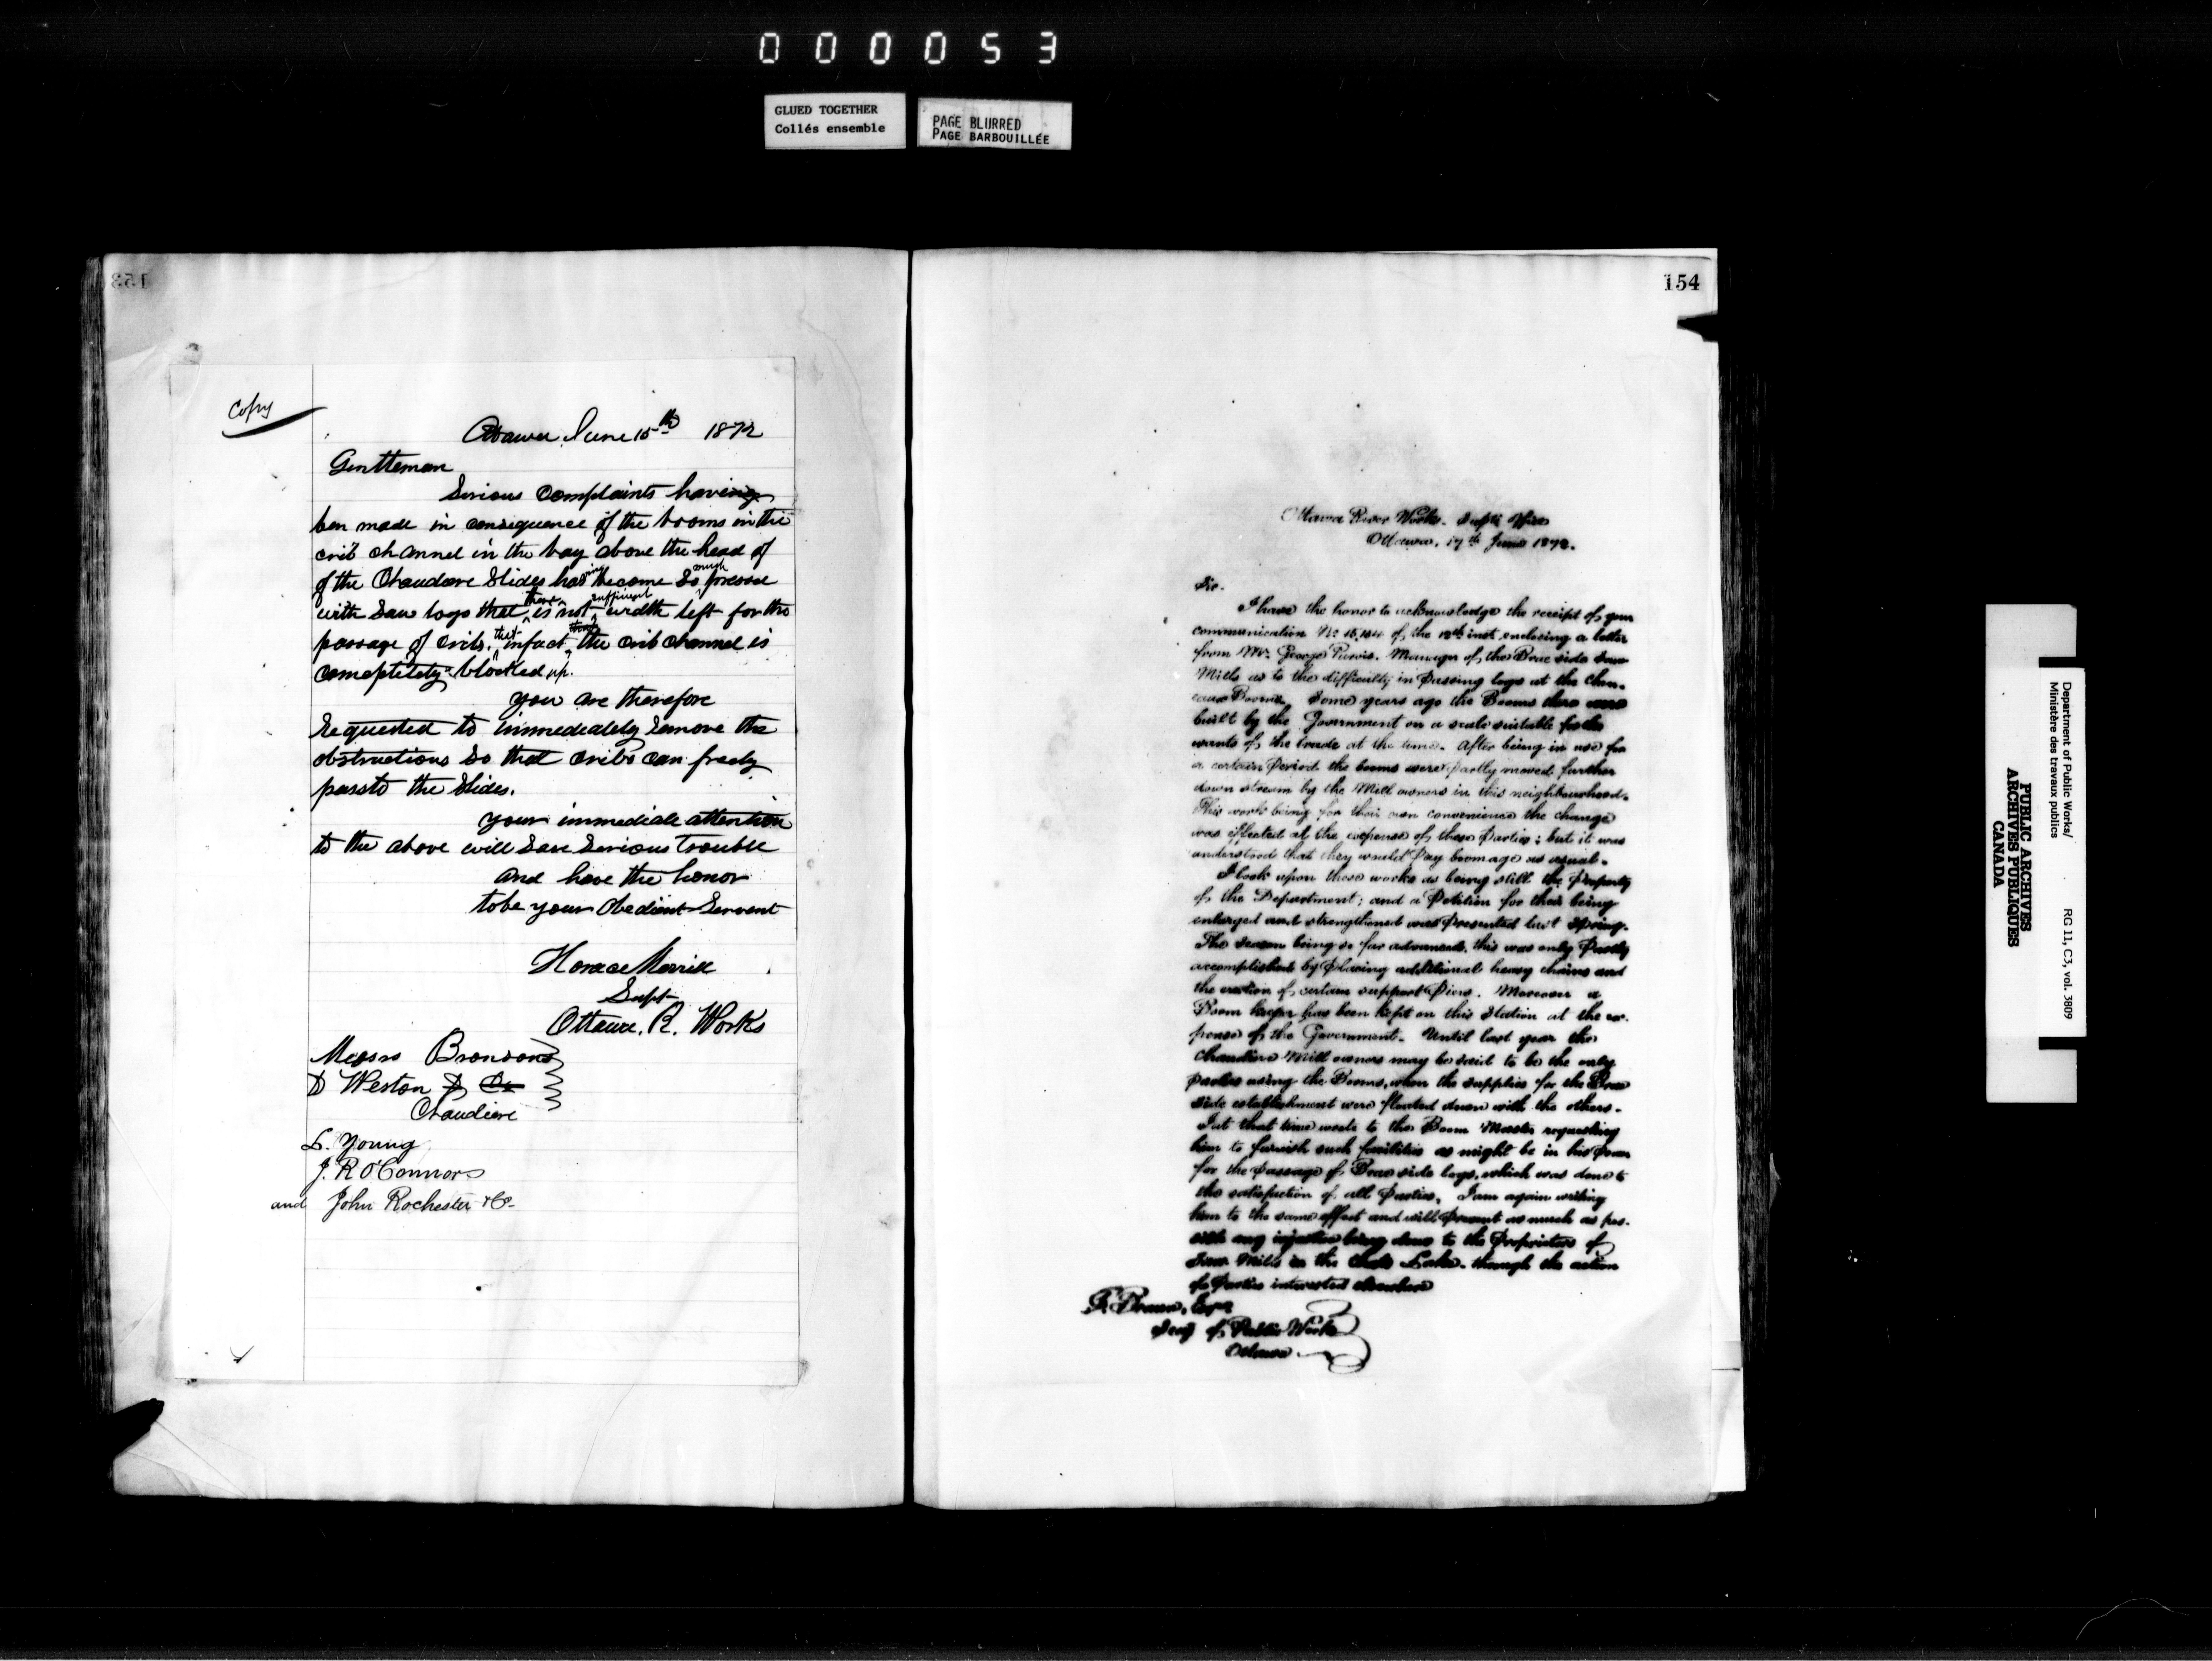 000053
GLUED TOGETHER
Collés ensemble
PAGE BLURRED
PAGE BARBOUILLÉE
153
Copy
Ottawa June 15th 1872
Gentteman
Serious complaints having
ben made in consequence of the booms in the
crib channel in the bay above the head of
of the Chaudiere Slides having become so much pressed
with Saw logs that there is not sufficient width left for the
passage of cribs. that infact the crib channel is
completely blocked up.
you are therefore
requested to immediately remove the
obstructions so that cribs can freely
pass to the Slides.
your immediate attention
to the above will Save Serious trouble
and have the honor
to be your Obedient Servant
Horace Merrill
Supt
Ottawa. R. Works
Messrs Bronsons
& Weston & Co
Chaudiere
L. Young
J. R O'Connor
and John Rochester & Co-
154
Ottawa River Works. Supts Office
Ottawa, 17th June 1872.
Sir.
I have the honor to acknowledge the receipt of your
communication No 15,1 of the 12th inst enclosing a letter
from Mr. George Purvis. Manager of the Brae side Saw
Mills as to the difficulty in Passing logs at the
Booms. Some years ago the Booms there were
built by the Government on a scale suitable for the
wants of the trade at the time. After being in use for
a certain Period the booms were Partly moved further
down stream by the Mill owners in this neighbourhood.
This work being for their own convenience the change
was effected at the expense of these Parties; but it was
understood that they would Pay boomage as usual.
I look upon these works as being still the Property
of the Department; and a Petition for their being
enlarged and strengthened was Presented last Spring.
The Season being so far advanced. this was only Partly
accomplished by Placing additional heavy chains and
the erection of certain support Piers. Moreover a
Boom keeper has been kept on this Station at the ex-
pense of the Government. Until last year the
Chaudiere Mill owners may be said to be the only
Parties using the Booms, when the supplies for the Brae
side establishment were floated down with the others.
I at that time wrote to the Boom Master requesting
him to furnish such facilities as might be in his Power
for the Passage of Brae side logs, which was done to
the satisfaction of all Parties. I am again writing
him to the same effect and will Prevent as much as pos-
sible any injustice being done to the Proprietors of
Saw Mills in the Chats Lake. through the action
of Parties interested elsewhere
F. Braun, Esqr
Secy of Public Works
Ottawa
Department of Public Works/ RG 11, C3, vol. 3809
Ministère des travaux publics
PUBLIC ARCHIVES
ARCHIVES PUBLIQUES
CANADA